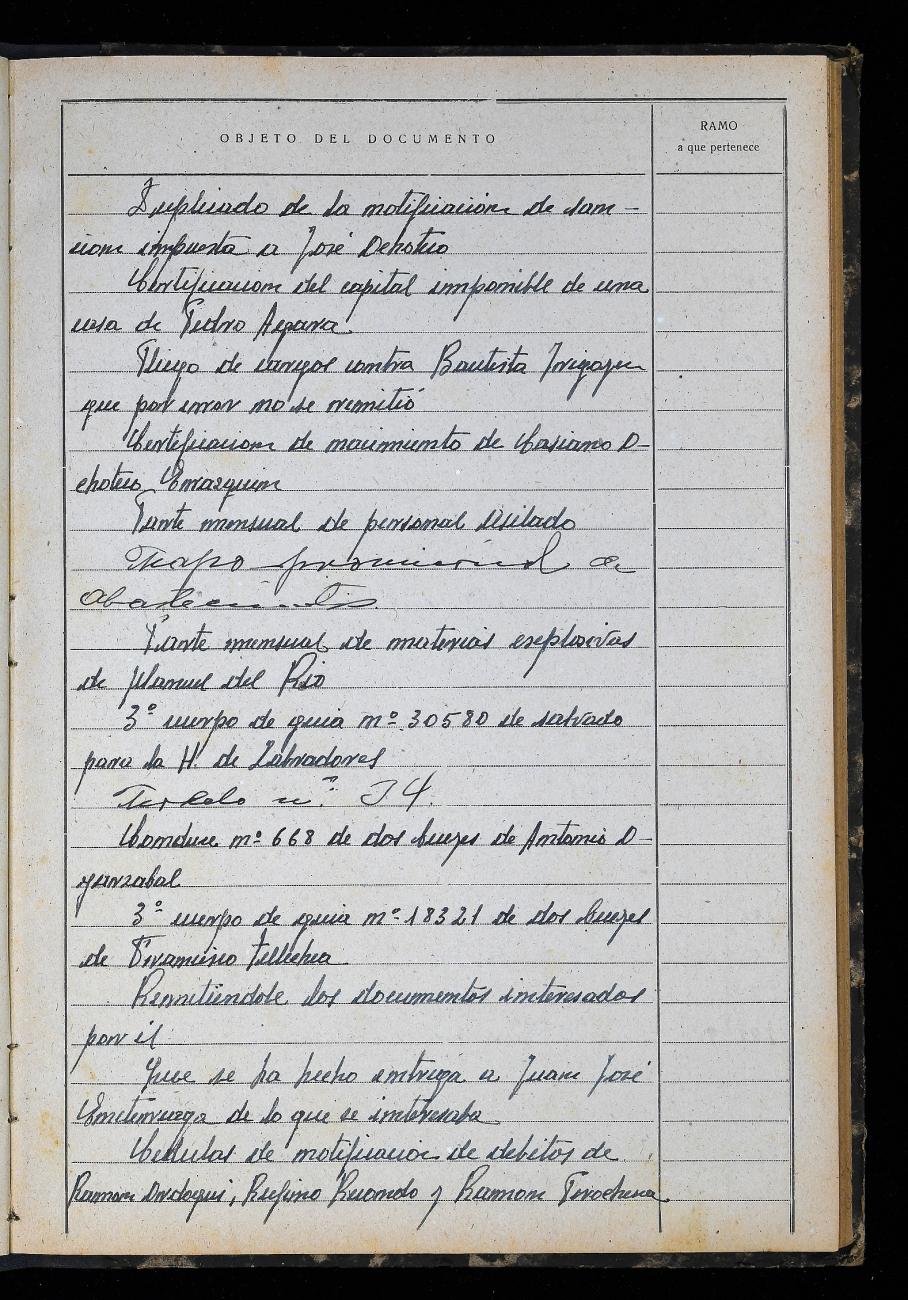 OBJETO DEL DOCUMENTO
RAMO
a que pertenece
Duplicado de la notificacion de san-
cion impuesta a José Dehoteo
Certificacion del capital imponible de una
casa de Pedro Apara
Pliego de cargos contra Bautista Irigoyen
que por error no se remitió
Certificacion de nacimiento de Casiano O-
choteco Errazquin
Parte mensual de personal asilado
provincial de
Parte mensual de materias explosivas
de Manuel del Rio
3º cuerpo de guia nº 30580 de salvado
para la H. de Labradores
nº 34.
Conduce nº 668 de dos bueyes de Antonio O-
yarzabal
3º cuerpo de guia nº 18321 de dos bueyes
de Francisco Tellechea
Remitiendole los documentos interesados
por él
Que se ha hecho entrega a Juan José
de lo que se interesaba
Cedulas de notificacion de debitos de
Ramon Rufino y Ramon